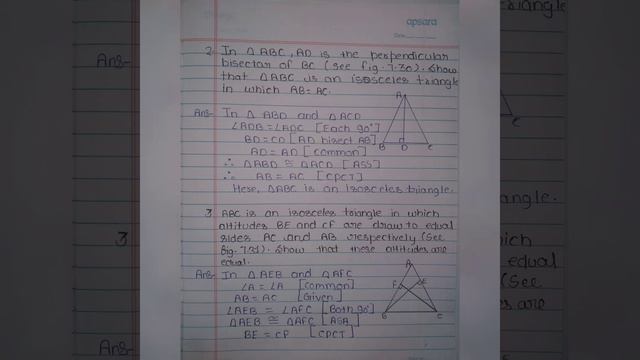 apsara
Date
2. In △ ABC, AD is the perpendicular
bisector of BC (see fig. 7.30). Show
that △ABC is an isosceles triangle
in which AB = AC.
Ans- In △ ABD and △ ACD
∠ADB = ∠ADC [Each 90°]
BD = CD [AD bisect AB]
AD = AD [common]
∴ △ABD ≅ △ACD [ASS]
∴ AB = AC [CPCT]
Here, △ABC is an isosceles triangle.
A
B D C
3 ABC is an isosceles triangle in which
altitudes BE and CF are draw to equal
sides AC and AB respectively (See
fig. 7.31). Show that these altitudes are
equal.
Ans- In △AEB and △AFC
∠A = ∠A [common]
AB = AC [Given]
∠AEB = ∠AFC [Both 90°]
△AEB ≅ △AFC [ASA]
BE = CF [CPCT]
A
F E
B C
Ans-
3
Ans-
triangle
C
angle.
hich
equal
(See
are